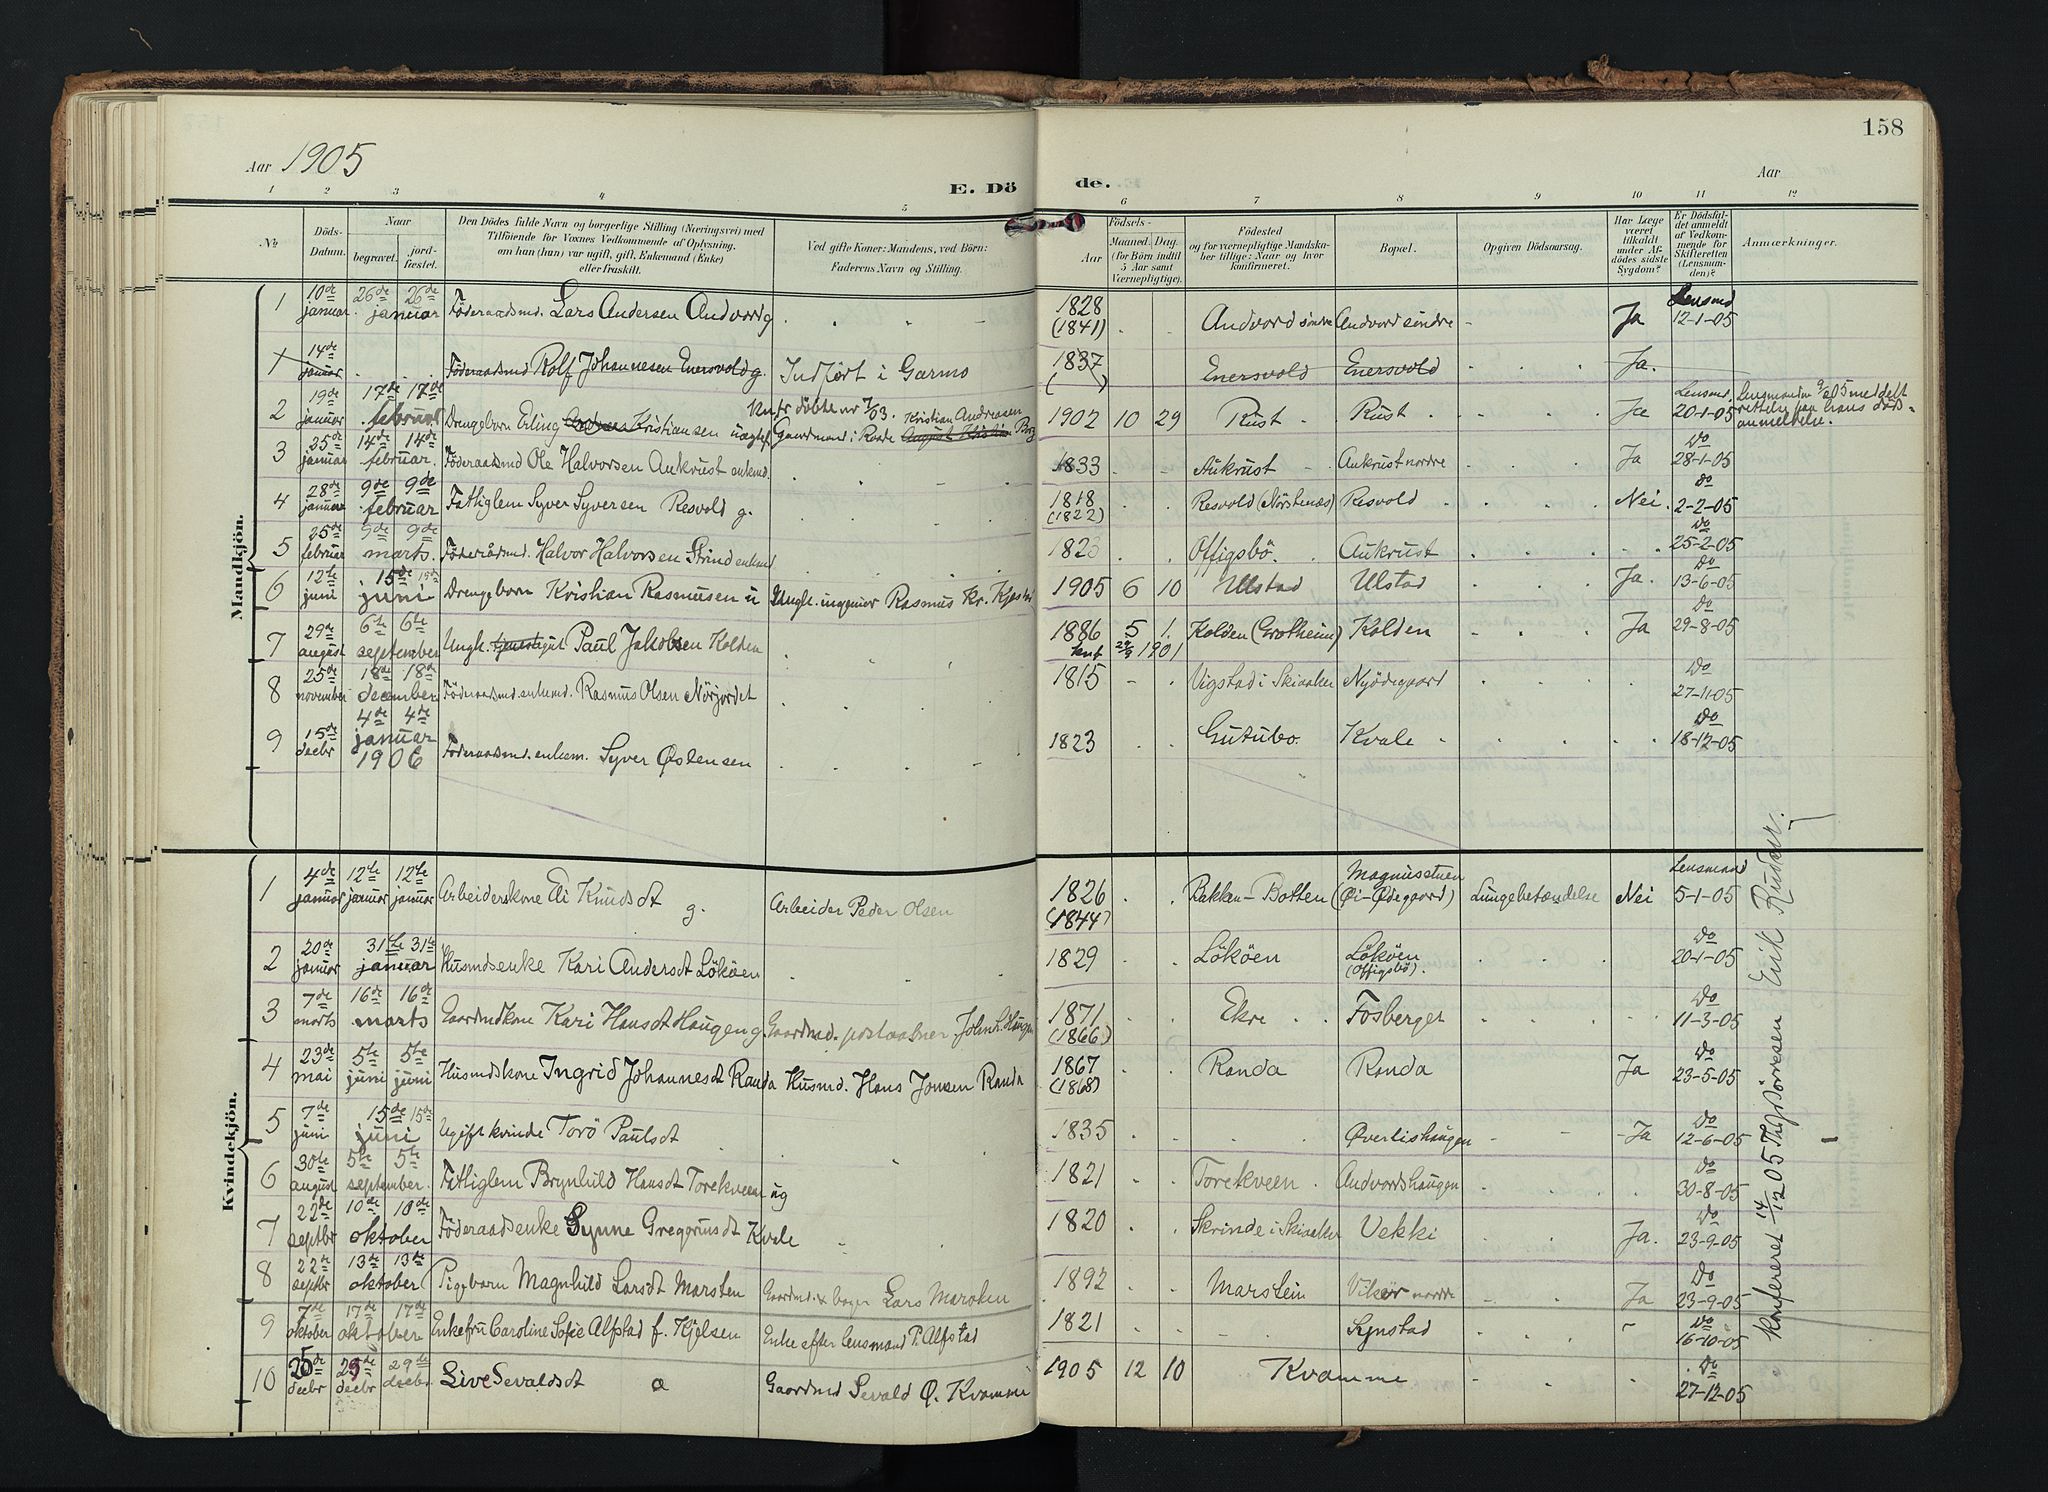 158
Aar 1905
Aar
E. Dö
de.
1 2 3 4 5 6 7 8 9 10 11 12
No
Döds-Datum.
Naar
begravet.
jordfæstet.
Den Dödes fulde Navn og borgerlige Stilling (Næringsvei) med
Tilföiende for Voxnes Vedkommende af Oplysning,
om han (hun) var ugift, gift, Enkemand (Enke)
eller fraskilt.
Ved gifte Koner: Mandens, ved Börn:
Faderens Navn og Stilling.
Födsels-
Aar
Maaned. Dag.
(for Börn indtil
5 Aar samt
Værnepligtige).
Födested
og for værnepligtige Mandska-
ber tillige: Naar og hvor
konfirmeret.
Bopæl.
Opgiven Dödsaarsag.
Har Læge
været
tilkaldt
under Af-
dödes sidste
Sygdom?
Er Dödsfal-
det anmeldt
af Vedkom-
mende for
Skifteretten
(Lensman-
den)?
Anmærkninger.
Mandkjön.
1 10de januar 26de 26de januar Föderaadsmd. Lars Andersen Andvord g 1828 (1841) Andvord söndre Andvord söndre Ja Lensmd 12-1-05
1 14de januar Föderaadsmd Rolf Johannesen Enersvold g. Indfört i Garmo 1837 Enersvold Enersvold Ja.
2 19de januar 17de 17de februar Drengebarn Erling Kristiansen uægtef. Kristian Andreasen Gaardmand i Raade Borg 1902 10 29 Rust Rust Ja Lensmd. 20-1-05
3 25de januar 14de 14de februar. Föderaadsmd Ole Halvorsen Aukrust enkmd. 1833 Aukrust Aukrust nordre Ja Do 28-1-05
4 28de januar 9de 9de februar Fattiglem Syver Syversen Resvold g. 1818 (1822) Resvold (Nörstenæs) Resvold Nei. do 2-2-05
5 25de februar 9de 9de marts. Föderådsmd. Halvor Halvorsen Strind enkmd 1823 Offigsbö. Aukrust Do 25-2-05
6 12te juni 15de 15de juni Drengebarn Kristian Rasmusen u Ungk. ingeniør Rasmus Kr. 1905 6 10 Ulstad Ulstad Ja. Do 13-6-05
7 29de august 6te 6te september Ungk. Paul Jakobsen Kolden 1886 5 1. konf 1901 Kolden (Grotheim) Kolden Ja Do 29-8-05
8 25de november 18de 18de december Föderaadsmd. enkemd. Rasmus Olsen Nörjordet 1815 Vigstad i Skiaaker Nyödegaard Do 27-11-05
9 15de decbr 4de 4de januar 1906 Föderaadsmd. enkem. Syver Østensen 1823 Gutubo. Kvale Do 18-12-05
Kvindekjön.
1 4de januar 12te januar 12te januar Arbeiderskone Knudsdt g. Arbeider Peder Olsen 1826 (1844) Bakken-Botten Magnusstuen (Øi-Ødegaard) Lungebetændelse Nei Lensmand 5-1-05
2 20de januar 31te 31te januar Husmdsenke Kari Andersdt Lököen 1829 Lököen Lököen (Offigsbö). Do 20-1-05
3 7de marts 16de 16de marts Gaardmdkone Kari Hansdt Haugen g. Gaardmd. postaabner Johan L. Haugen 1871 (1866) Ekre Fosberget Do 11-3-05
4 23de mai 5te juni 5te juni Husmdskone Ingrid Johannesdt Randa Husmd. Hans Jonsen Randa 1867 (1868) Randa Randa Ja Do 23-5-05
5 7de juni 15de 15de juni Ugift kvinde Torö Paulsdt 1835 Øverlishaugen Ja Do 12-6-05
6 30te august 5te 5te september. Fattiglem Brynhild Hansdt Torekveen ug 1821 Torekveen Andvordshaugen Do 30-8-05
7 22de septbr 10de 10de oktober Föderaadsenke Synne Gregoriusdt Kvale 1820 Skrinde i Skiaaker Vekki Ja. Do 23-9-05
8 22de septbr 13de 13de oktober Pigebarn Magnhild Larsdt Marsten Gaardmd. Lars Marsten 1892 Marstein nordre Ja Do 23-9-05
9 7de oktober 17de 17de oktober Enkefru Caroline Sofie Alfstad f. Kjelsen Enke efter lensmand P. Alfstad 1821 Synstad Do 16-10-05
10 25de decbr 29de decbr 29de decbr Live Sevaldsdt a Gaardmd Sevald Ø. Kvamme 1905 12 10 Kvamme Do 27-12-05
Konfereret 14/12 05
Erik